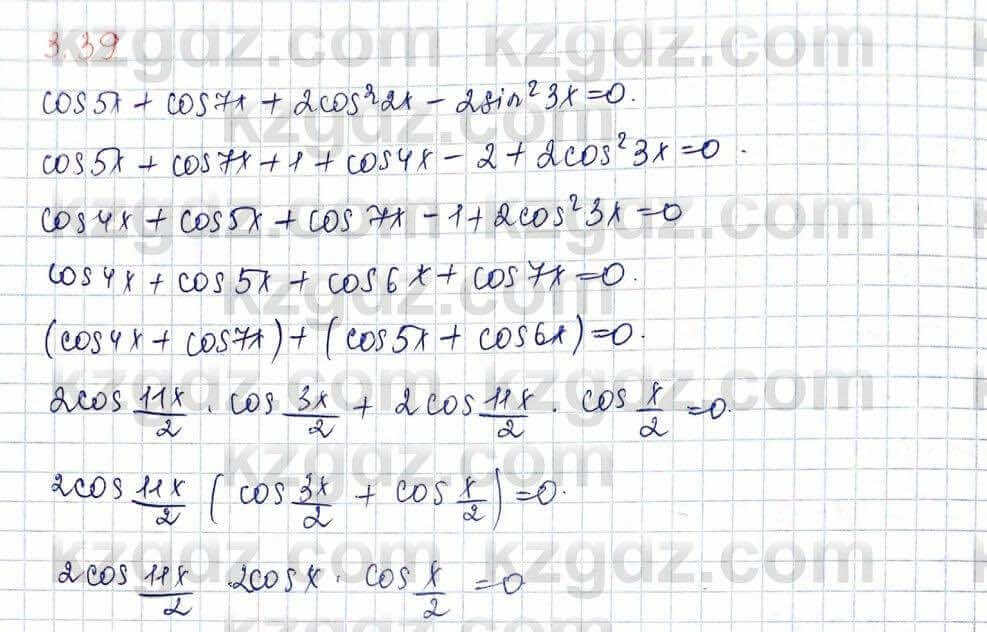 3.39
cos5x + cos7x + 2cos²2x − 2sin²3x = 0.
cos5x + cos7x + 1 + cos4x − 2 + 2cos²3x = 0.
cos4x + cos5x + cos7x − 1 + 2cos²3x = 0
cos4x + cos5x + cos6x + cos7x = 0.
(cos4x + cos7x) + (cos5x + cos6x) = 0.
2cos 11x/2 · cos 3x/2 + 2cos 11x/2 · cos x/2 = 0.
2cos 11x/2 (cos 3x/2 + cos x/2) = 0.
2cos 11x/2 · 2cosx · cos x/2 = 0
kzgdz.com